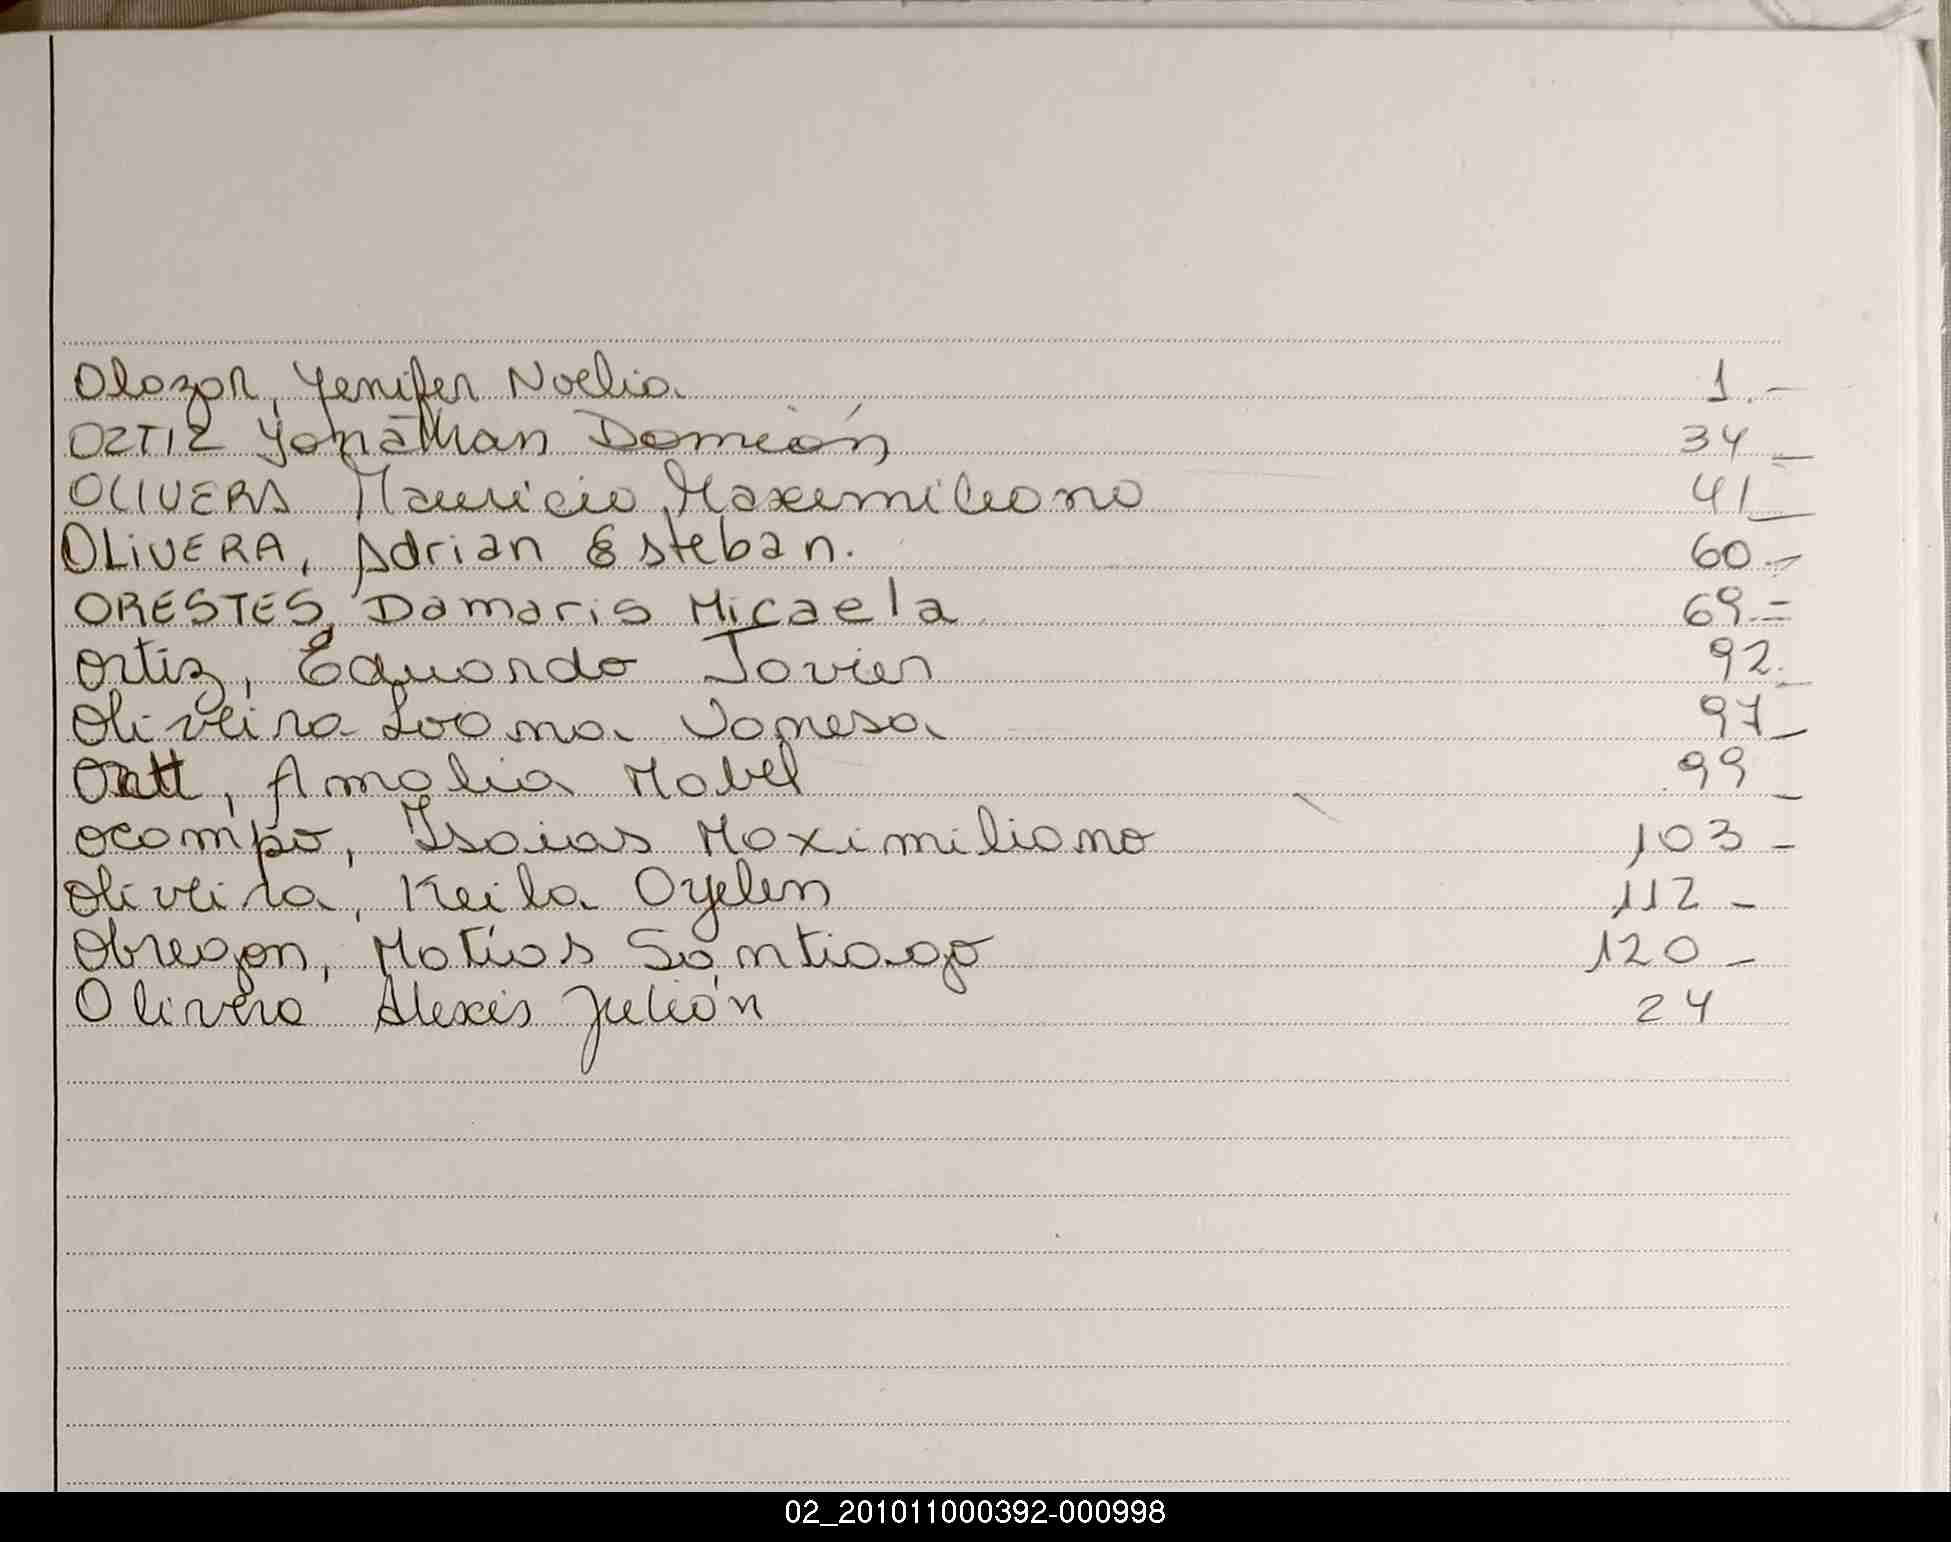 Olazar, Yenifer Noelia 1.-
ORTIZ Yonathan Damián 34 -
OLIVERA Mauricio Maximiliano 41 -
OLIVERA, Adrian Esteban. 60.-
ORESTES, Damaris Micaela 69.=
Ortiz, Eduardo Javier 92.-
Oliveira Loana Vanesa 97 -
Ott, Amalia Mabel 99 -
Ocampo, Isaias Maximiliano 103 -
Oliveira, Keila Ayelen 112 -
Obregon, Matías Santiago 120 -
Olivera Alexis Julián 24
02_201011000392-000998